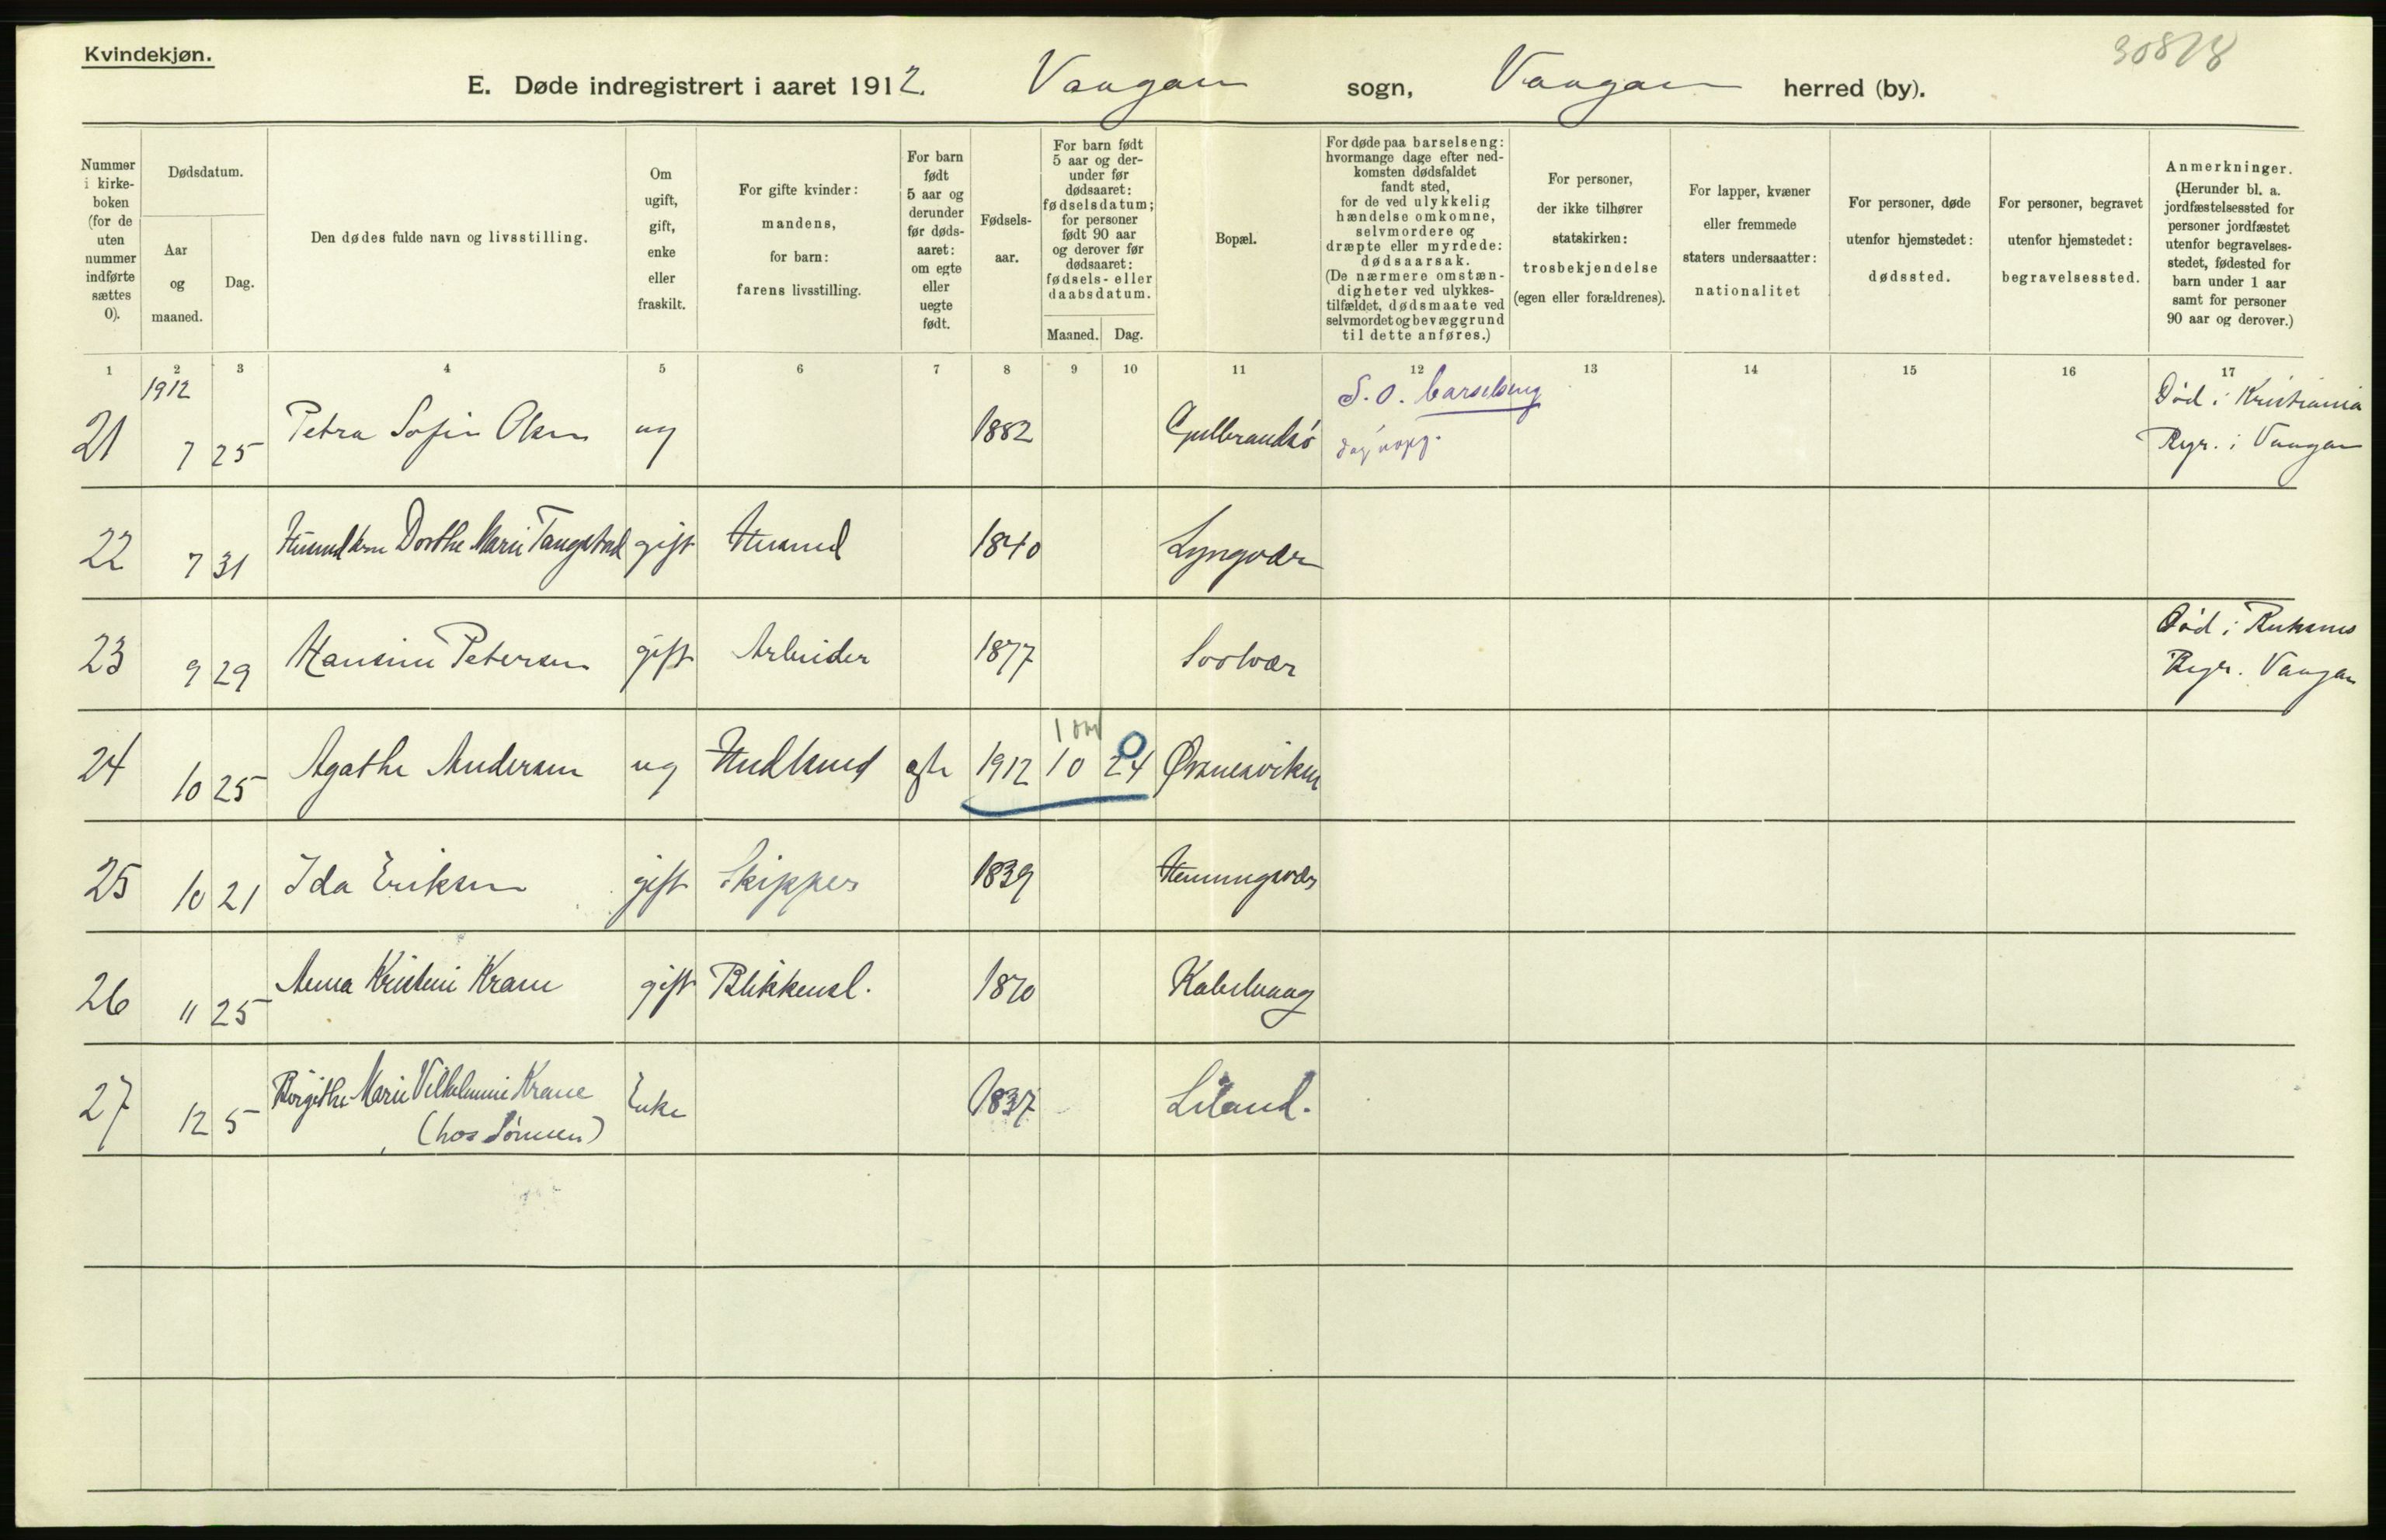 Kvindekjøn.
30878
E. Døde indregistrert i aaret 1912. Vaagan sogn, Vaagan herred (by).
Nummer i kirke- boken (for de uten nummer indførte sættes 0).
Dødsdatum.
Aar og maaned.
Dag.
Den dødes fulde navn og livsstilling.
Om ugift, gift, enke eller fraskilt.
For gifte kvinder: mandens, for barn: farens livsstilling.
For barn født 5 aar og derunder før døds- aaret: om egte eller uegte født.
Fødsels- aar.
For barn født 5 aar og der- under før dødsaaret: fødselsdatum; for personer født 90 aar og derover før dødsaaret: fødsels- eller daabsdatum.
Maaned. Dag.
Bopæl.
For døde paa barselseng: hvormange dage efter ned- komsten dødsfaldet fandt sted, for de ved ulykkelig hændelse omkomne, selvmordere og dræpte eller myrdede: dødsaarsak. (De nærmere omstæn- digheter ved ulykkes- tilfældet, dødsmaate ved selvmordet og bevæggrund til dette anføres.)
For personer, der ikke tilhører statskirken: trosbekjendelse (egen eller forældrenes).
For lapper, kvæner eller fremmede staters undersaatter: nationalitet
For personer, døde utenfor hjemstedet: dødssted.
For personer, begravet utenfor hjemstedet: begravelsessted.
Anmerkninger. (Herunder bl. a. jordfæstelsessted for personer jordfæstet utenfor begravelses- stedet, fødested for barn under 1 aar samt for personer 90 aar og derover.)
1 2 3 4 5 6 7 8 9 10 11 12 13 14 15 16 17
1912
21 7 25 Petra Sofie Olsen ug 1882 Gulbrandsö S. O. barselseng Död i Kristiania
Vaagan
22 7 31 Dorthe Marie Tangstad gift Husmd 1840 Lyngvær
23 9 29 Hansine Petersen gift Arbeider 1877 Svolvær Död i
Vaagan
24 10 25 Agathe Andersen ug egte 1912 10 24 Ørsnesviken
0
25 10 21 Ida Eriksen gift Skipper 1839 Henningsvær
26 11 25 Anna Kristine Krane gift Blikkensl. 1870 Kabelvaag
27 12 5 Birgithe Marie Vilhelmine Krane Enke 1837 Liland.
(hos Sönnen)